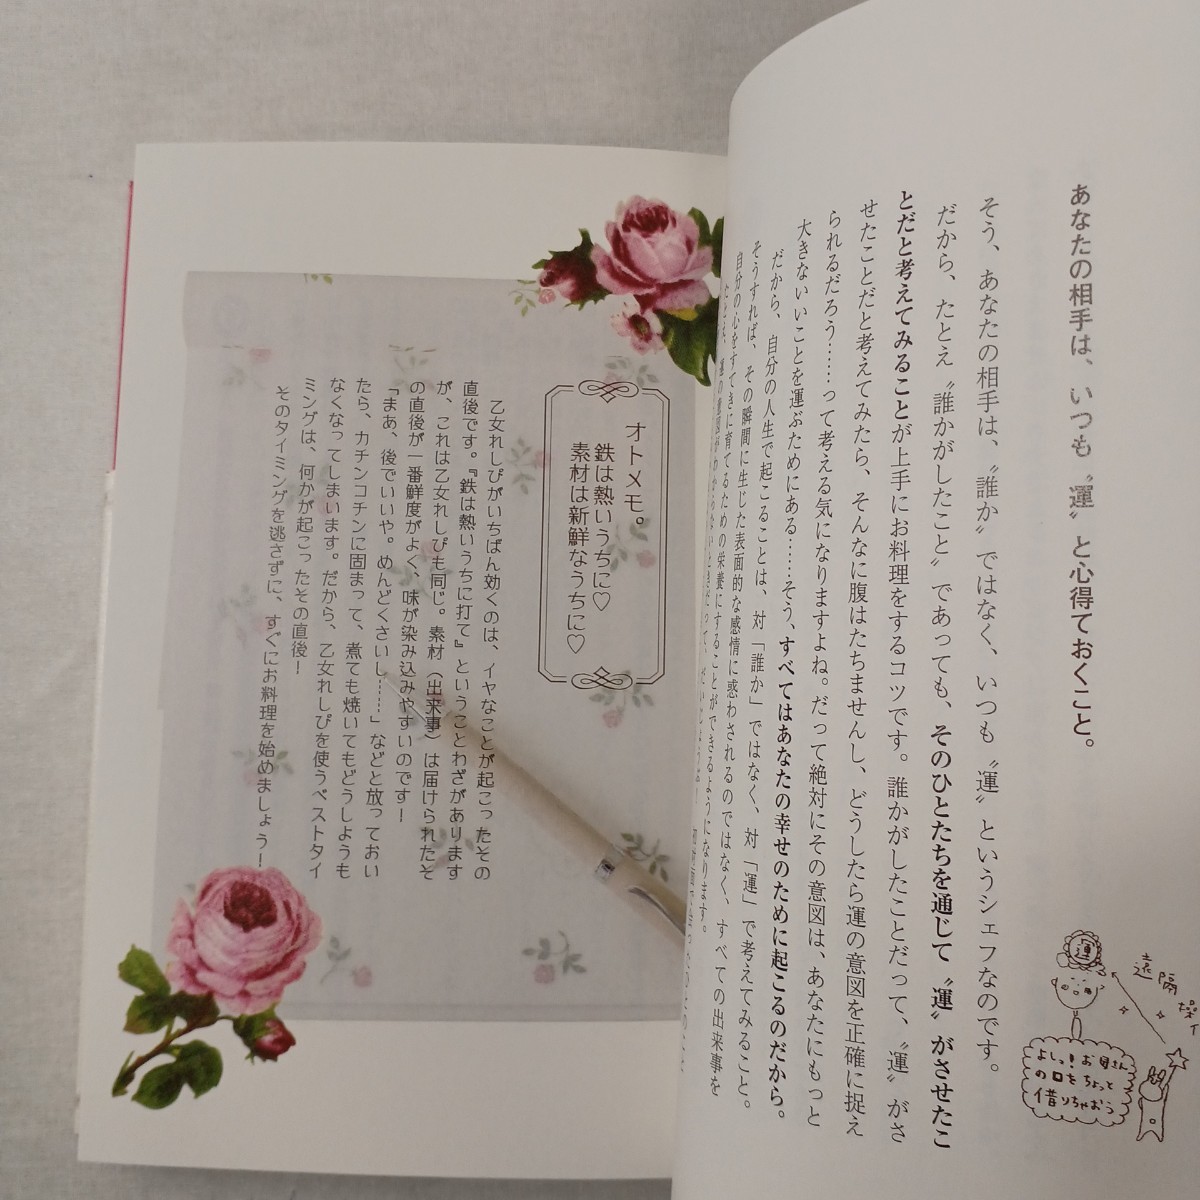 あなたの相手は、いつも〝運〟と心得ておくこと。
そう、あなたの相手は、〝誰か〟ではなく、いつも〝運〟というシェフなのです。
だから、たとえ〝誰かがしたこと〟であっても、そのひとたちを通じて〝運〟がさせたこ
とだと考えてみることが上手にお料理をするコツです。誰かがしたことだって、〝運〟がさ
せたことだと考えてみたら、そんなに腹はたちませんし、どうしたら運の意図を正確に捉え
られるだろう……って考える気になりますよね。だって絶対にその意図は、あなたにもっと
大きないいことを運ぶためにある……そう、すべてはあなたの幸せのために起こるのだから。
だから、自分の人生で起こることは、対「誰か」ではなく、対「運」で考えてみること。
そうすれば、その瞬間に生じた表面的な感情に惑わされるのではなく、すべての出来事を
自分の心をすてきに育てるための栄養にすることができるようになります。
遠隔操
運
よしっ!お母さん
の口をちょっと
借りちゃおう
オトメモ。
鉄は熱いうちに♡
素材は新鮮なうちに♡
乙女れしぴがいちばん効くのは、イヤなことが起こったその
直後です。『鉄は熱いうちに打て』ということわざがあります
が、これは乙女れしぴも同じ。素材(出来事)は届けられたそ
の直後が一番鮮度がよく、味が染み込みやすいのです!
「まあ、後でいいや。めんどくさいし……」などと放っておい
たら、カチンコチンに固まって、煮ても焼いてもどうしようも
なくなってしまいます。だから、乙女れしぴを使うベストタイ
ミングは、何かが起こったその直後!
そのタイミングを逃さずに、すぐにお料理を始めましょう!